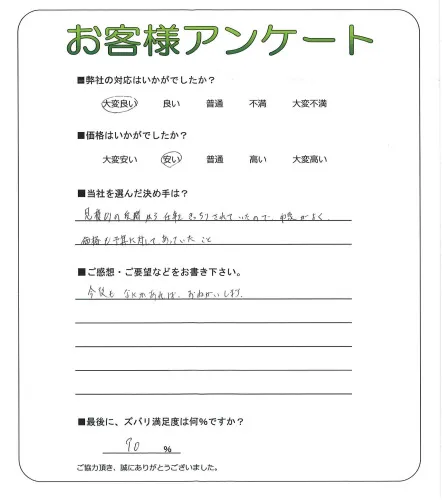 お客様アンケート
■弊社の対応はいかがでしたか？
大変良い 良い 普通 不満 大変不満
■価格はいかがでしたか？
大変安い 安い 普通 高い 大変高い
■当社を選んだ決め手は？
見積りの段階から仕事きっちりされていたので、印象がよく、
価格も予算に対してあっていたこと
■ご感想・ご要望などをお書き下さい。
今後もなにかあれば、おねがいします。
■最後に、ズバリ満足度は何％ですか？
90 ％
ご協力頂き、誠にありがとうございました。